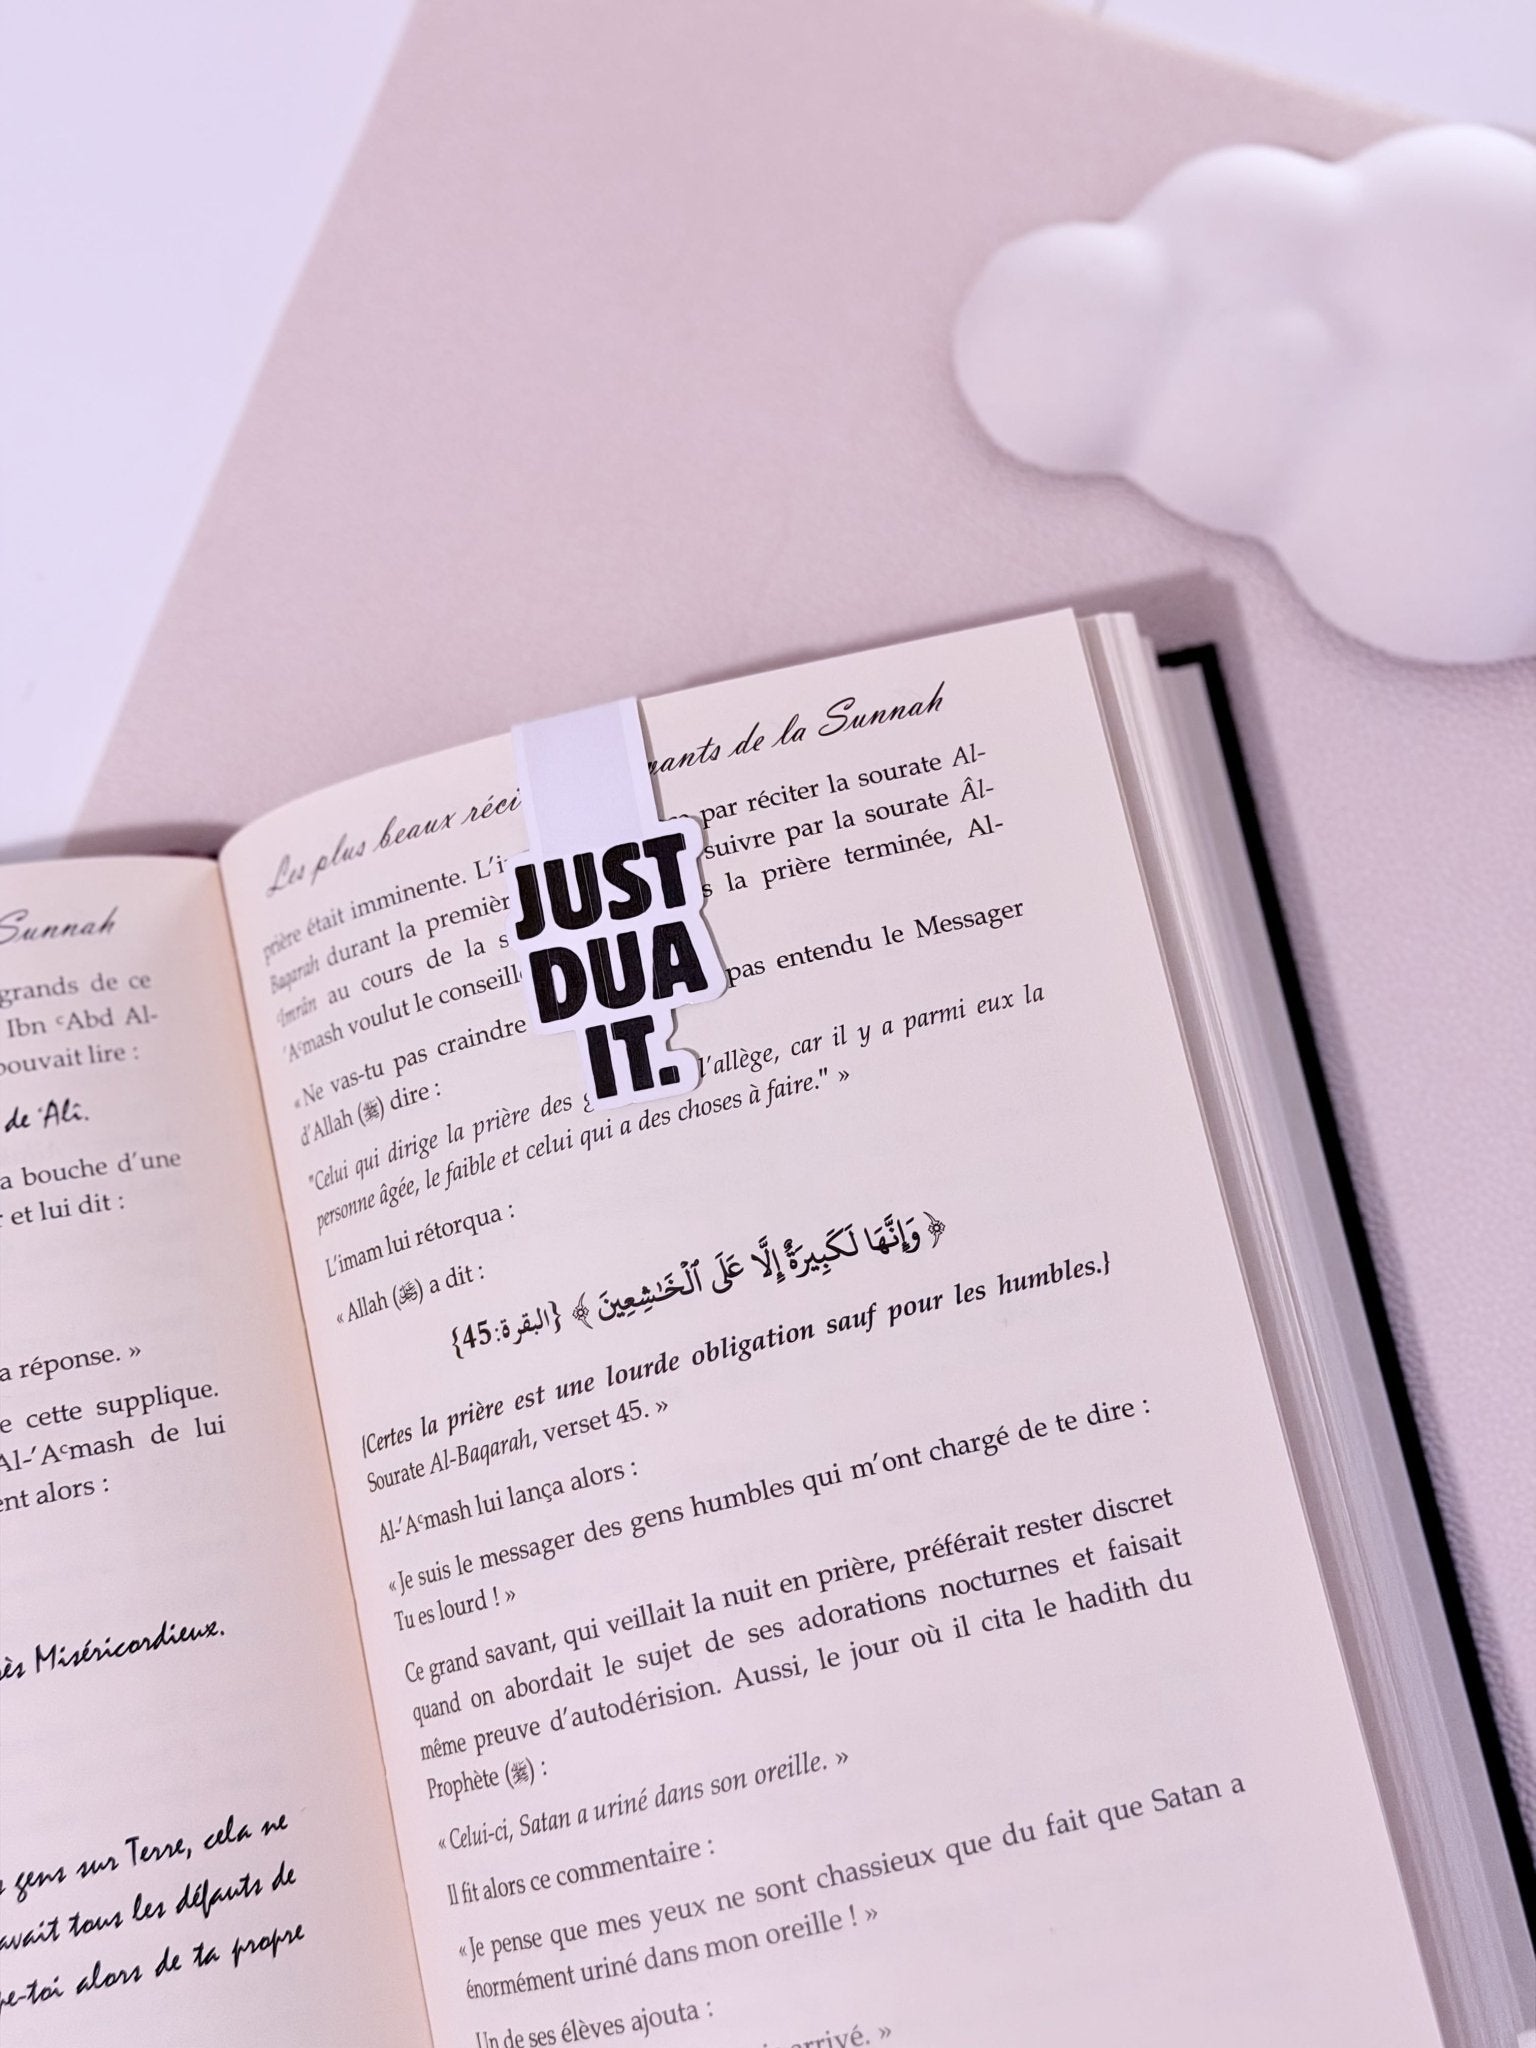 Sunnah
grands de ce
Ibn ᶜAbd Al-
pouvait lire :
de ‘Alî.
a bouche d’une
et lui dit :
a réponse. »
e cette supplique.
Al-’Aᶜmash de lui
ent alors :
ès Miséricordieux.
gens sur Terre, cela ne
avait tous les défauts de
pe-toi alors de ta propre
Les plus beaux réci
vants de la Sunnah
prière était imminente. L’i par réciter la sourate Al-
Baqarah durant la premièr suivre par la sourate Âl-
ᶜImrân au cours de la s s la prière terminée, Al-
’Aᶜmash voulut le conseille
JUST
DUA
IT.
« Ne vas-tu pas craindre pas entendu le Messager
d’Allah (ﷺ) dire :
"Celui qui dirige la prière des g l’allège, car il y a parmi eux la
personne âgée, le faible et celui qui a des choses à faire." »
L’imam lui rétorqua :
« Allah (ﷻ) a dit :
﴿ وَإِنَّهَا لَكَبِيرَةٌ إِلَّا عَلَى ٱلْخَـٰشِعِينَ ﴾ {البقرة:45}
{Certes la prière est une lourde obligation sauf pour les humbles.}
Sourate Al-Baqarah, verset 45. »
Al-’Aᶜmash lui lança alors :
« Je suis le messager des gens humbles qui m’ont chargé de te dire :
Tu es lourd ! »
Ce grand savant, qui veillait la nuit en prière, préférait rester discret
quand on abordait le sujet de ses adorations nocturnes et faisait
même preuve d’autodérision. Aussi, le jour où il cita le hadith du
Prophète (ﷺ) :
« Celui-ci, Satan a uriné dans son oreille. »
Il fit alors ce commentaire :
« Je pense que mes yeux ne sont chassieux que du fait que Satan a
énormément uriné dans mon oreille ! »
Un de ses élèves ajouta :
arrivé. »